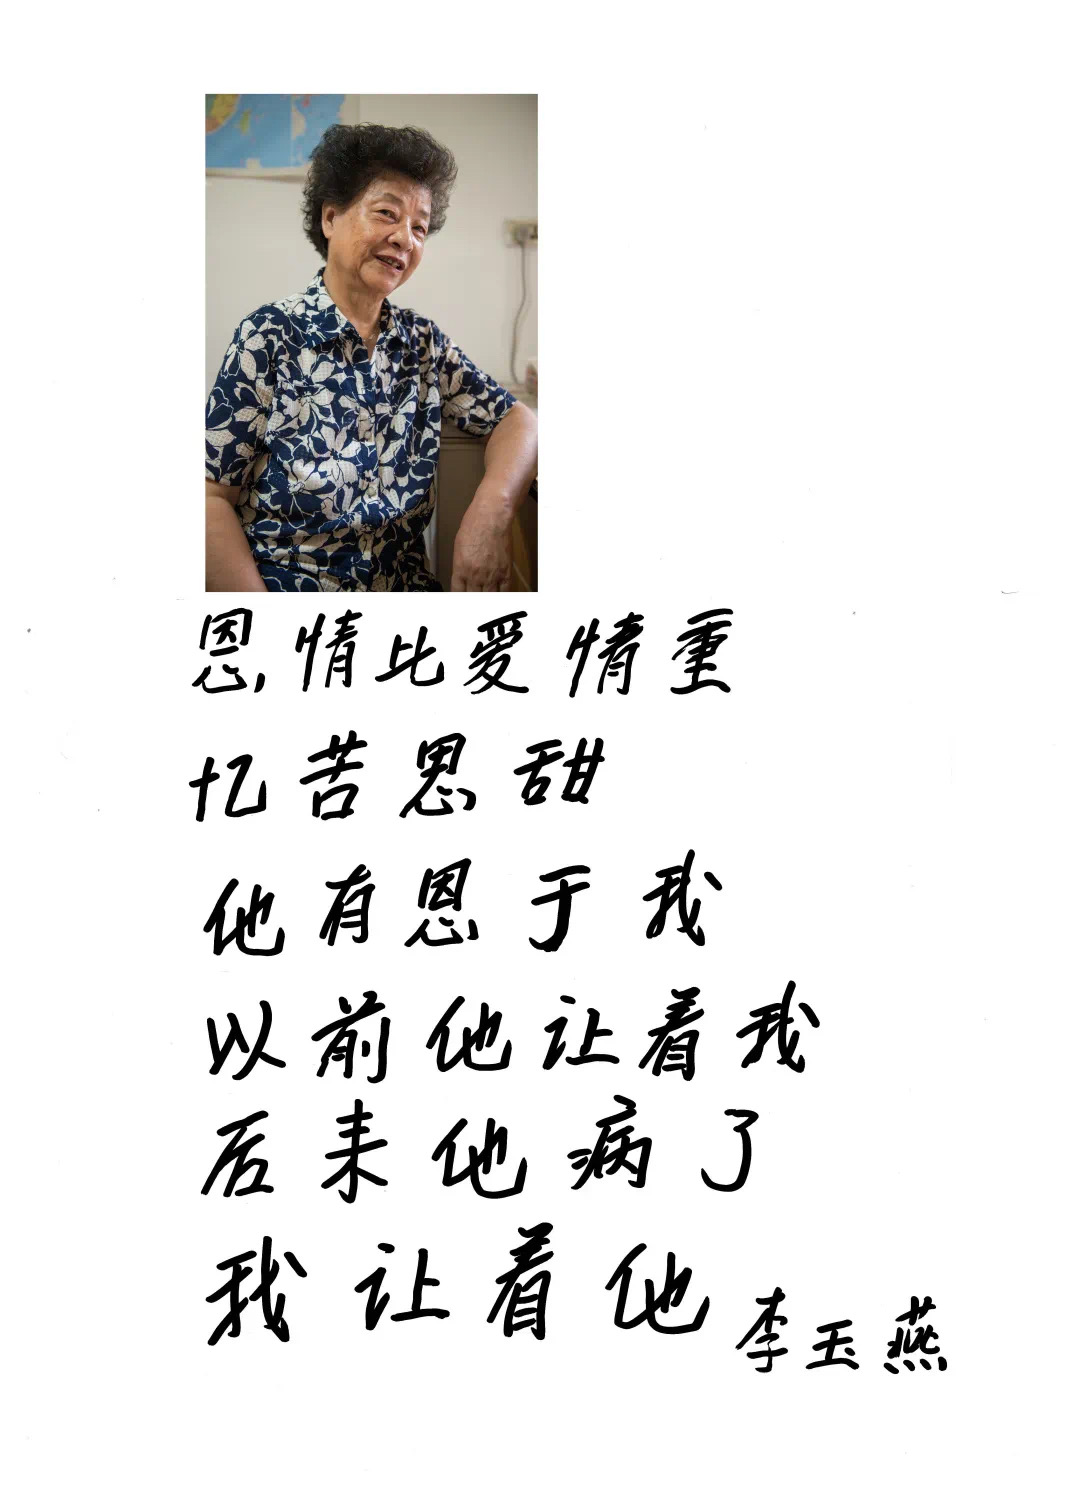 恩情比爱情重
忆苦思甜
他有恩于我
以前他让着我
后来他病了
我让着他
李玉燕